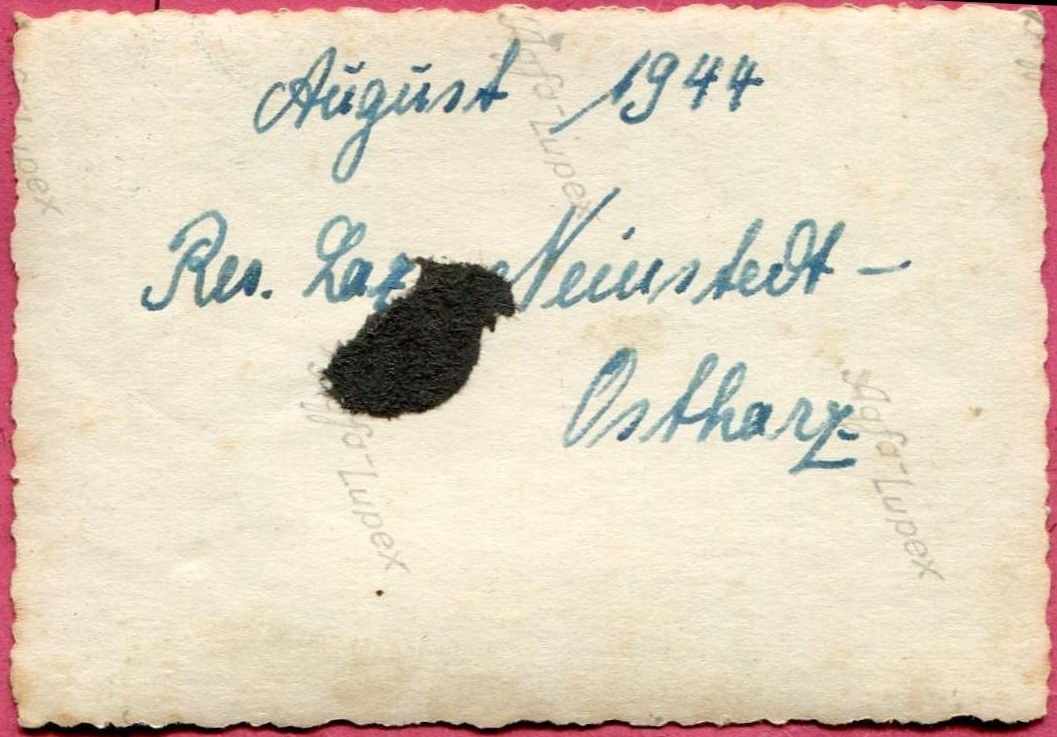 August 1944
Res. Laz Neinstedt –
Ostharz
Agfa-Lupex
Agfa-Lupex
Agfa-Lupex
Lupex